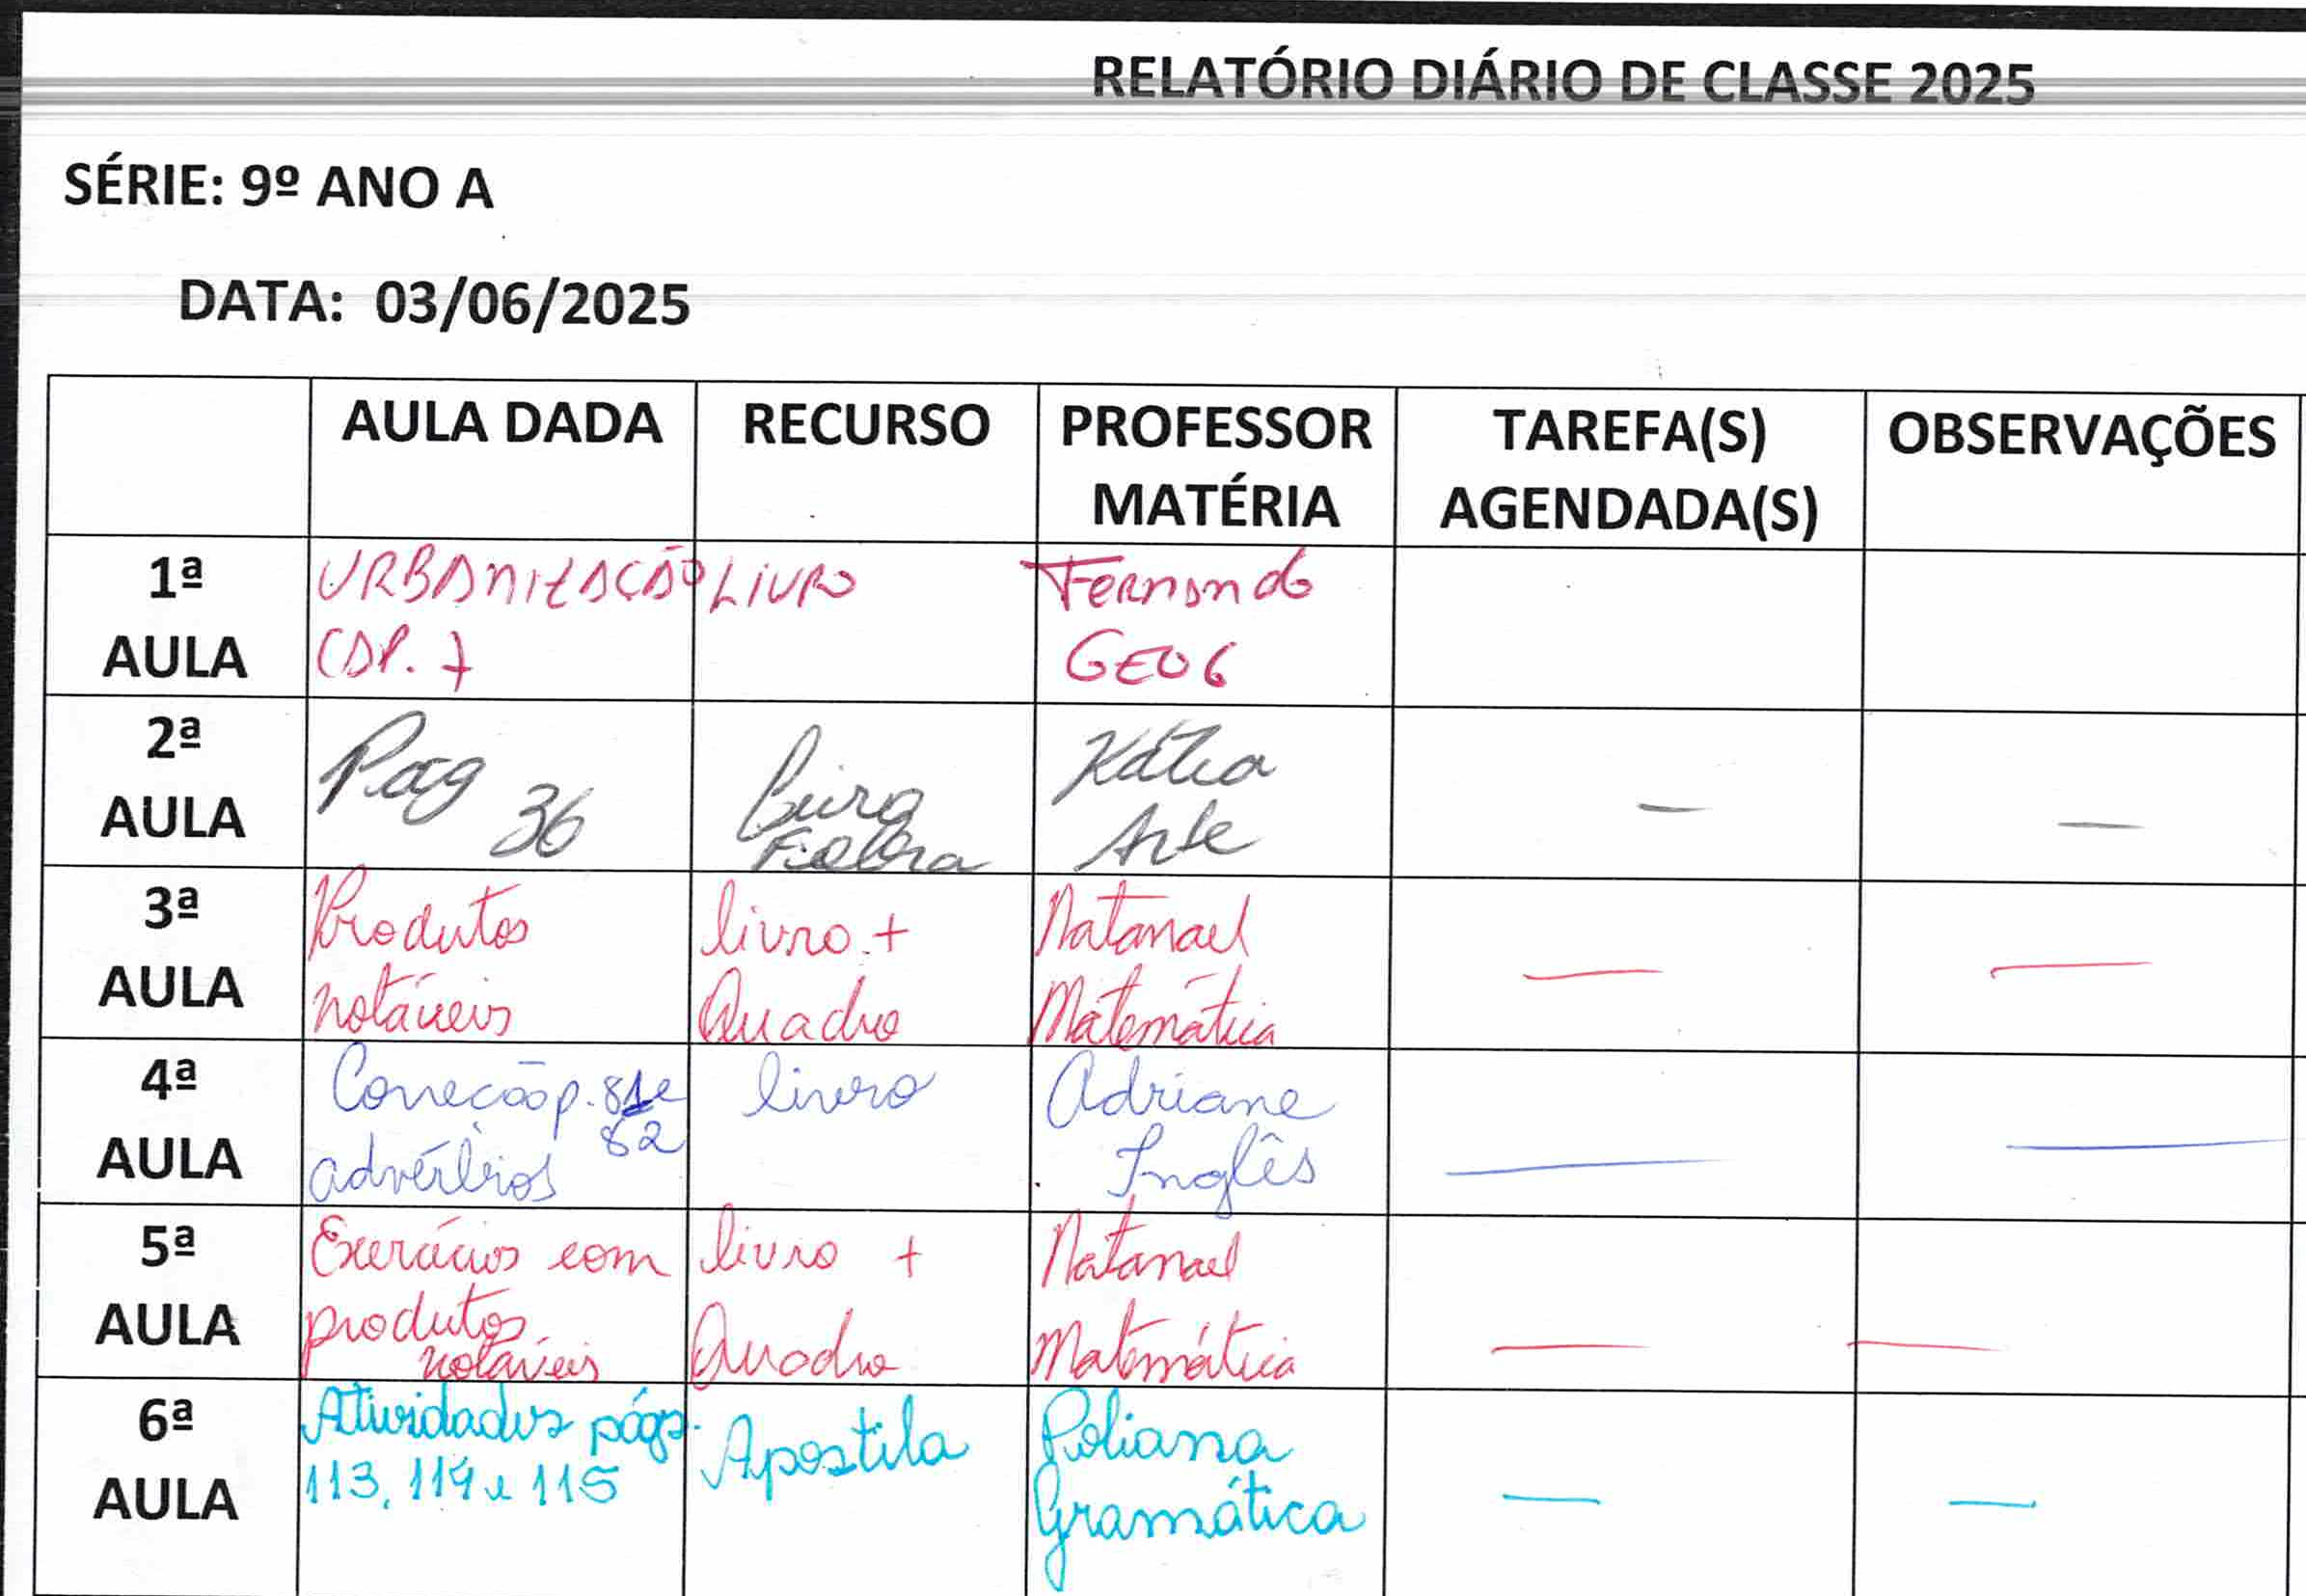 RELATÓRIO DIÁRIO DE CLASSE 2025
SÉRIE: 9º ANO A
DATA: 03/06/2025
AULA DADA RECURSO PROFESSOR MATÉRIA TAREFA(S) AGENDADA(S) OBSERVAÇÕES
1ª AULA
URBANIZAÇÃO
CAP. 7
LIVRO
Fernando
GEOG
2ª AULA
Pag 36
Kátia
Arte
—
—
3ª AULA
Produtos
notáveis
livro +
Quadro
Natanael
Matemática
—
—
4ª AULA
Correção p. 81 e
82
advérbios
livro
Adriane
Inglês
—
—
5ª AULA
Exercícios com
produtos
notáveis
livro +
Quadro
Natanael
Matemática
—
—
6ª AULA
Atividades págs.
113, 114 e 115
Apostila
Poliana
Gramática
—
—